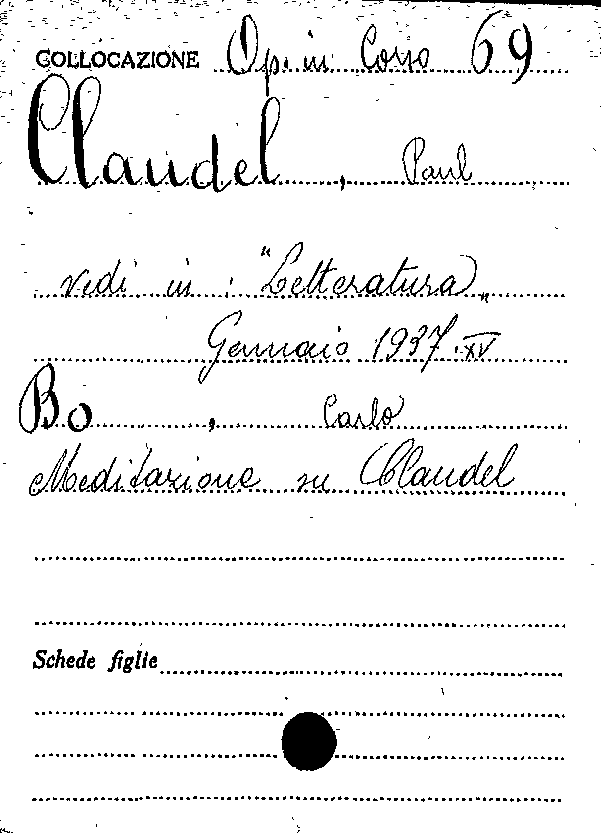 COLLOCAZIONE Op. in Corso 69
Claudel, Paul
vedi in : "Letteratura„
Gennaio 1937.XV
Bo, Carlo
Meditazione su Claudel
Schede figlie